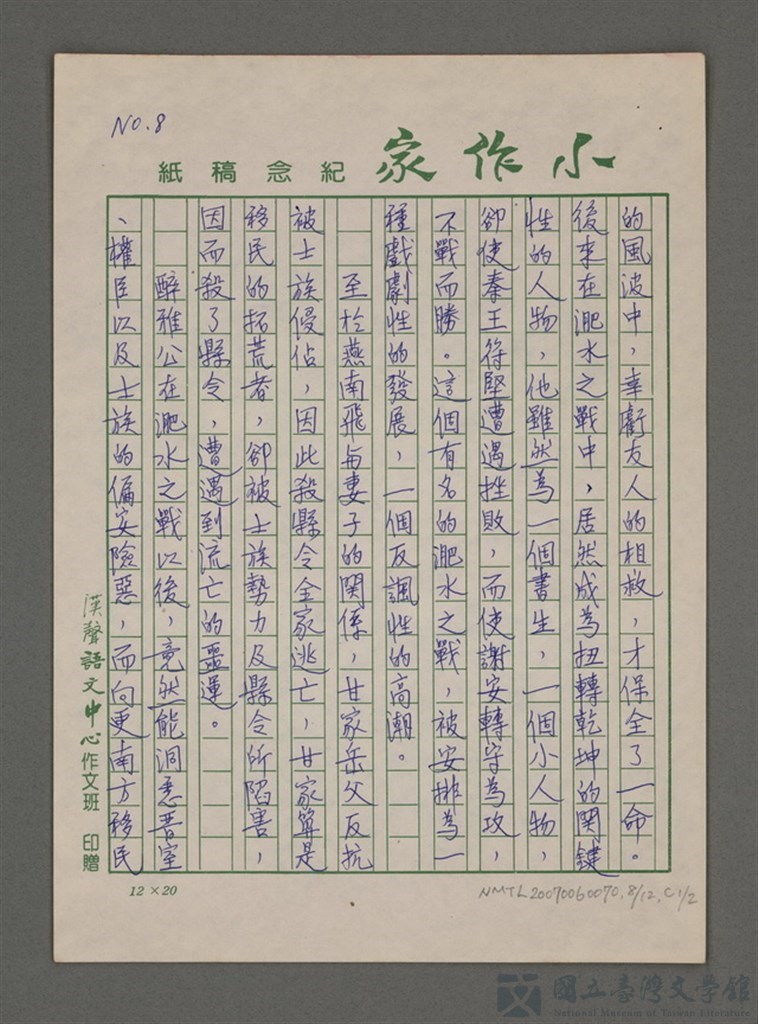 NO.8
小作家
紀念稿紙
的風波中，幸虧友人的相救，才保全了一命。
後來在淝水之戰中，居然成為扭轉乾坤的関鍵
性的人物，他雖然為一個書生，一個小人物，
卻使秦王苻堅遭遇挫敗，而使謝安轉守為攻，
不戰而勝。這個有名的淝水之戰，被安排為一
種戲劇性的發展，一個反諷性的高潮。
至於燕南飛与妻子的関係，甘家岳父反抗
被士族侵佔，因此殺縣令全家逃亡，甘家算是
移民的拓荒者，卻被士族勢力及縣令所陷害，
因而殺了縣令，遭遇到流亡的噩運。
醉雅公在淝水之戰以後，竟然能洞悉晋室
、權臣以及士族的偏安險惡，而向更南方移民
漢聲語文中心作文班 印贈
12×20
NMTL20070060070,8/12,C1/2
國立臺灣文學館
National Museum of Taiwan Literature